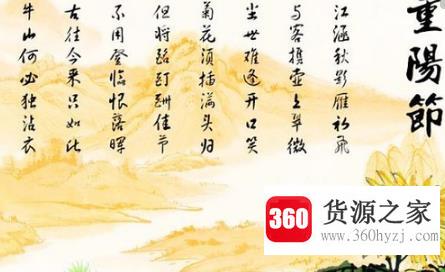 重陽節
江涵秋影雁初飛
与客携壺上翠微
尘世难逢开口笑
菊花须插满头归
但将酩酊酬佳节
不用登临恨落晖
古往今来只如此
牛山何必独沾衣
360 货源之家
www.360hyzj.com